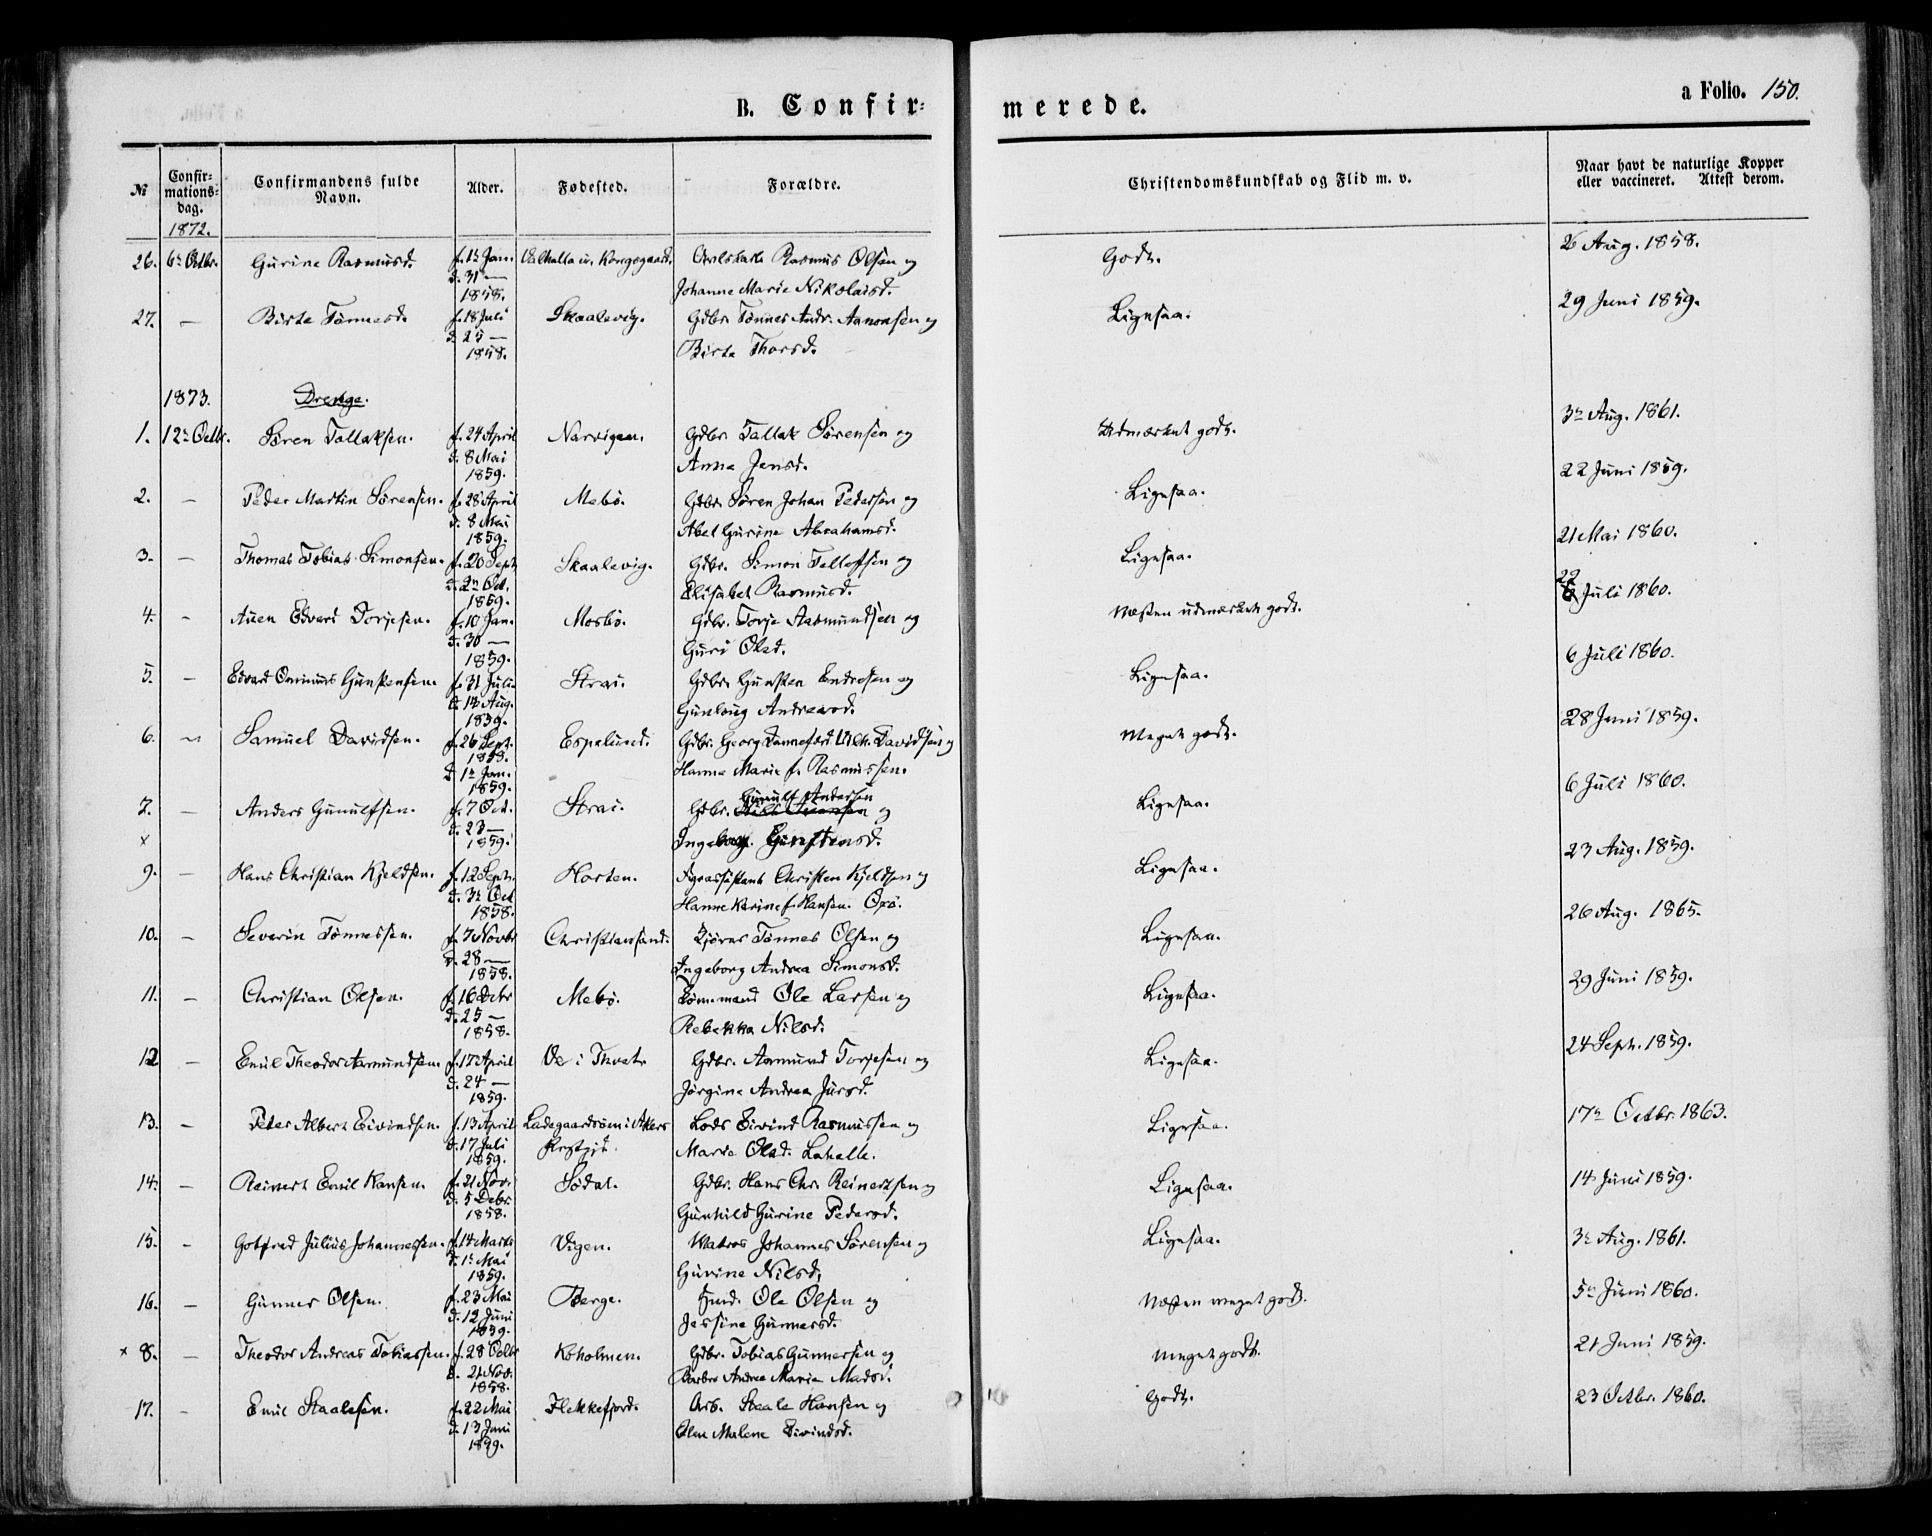 B. Confir-
merede.
a Folio. 150.
№
Confir-
mations-
dag.
Confirmandens fulde
Navn.
Alder.
Fødested.
Forældre.
Christendomskundskab og Flid m. v.
Naar havt de naturlige Kopper
eller vaccineret. Attest derom.
1872.
26. 6te Octbr. Gurine Rasmusd. f. 1te Jan. Valhalla u. Kongsgaard. Rasmus Olsen og Godt. 26 Aug. 1858.
d. 31 — Johanne Marie Nikolaisd.
1858.
27. — Birte Tønnesd. f. 18 Juli Skaalevig. Gdbr. Tønnes Andr. Aanonsen og Ligesaa. 29 Juni 1859.
d. 25 — Birte Thorsd.
1858.
1873. Drenge.
1. 12te Octbr. Søren Tallaksen. f. 24 April Narvigen. Gdbr. Tallak Sørensen og Udmærket godt. 3te Aug. 1861.
d. 8 Mai Anna Jensd.
1859.
2. — Peder Martin Sørensen. f. 28 April Mebø. Gdbr. Søren Johan Pedersen og Ligesaa. 22 Juni 1859.
d. 8 Mai Abel Gurine Abrahamsd.
1859.
3. — Thomas Tobias Simonsen. f. 20 Sept. Skaalevig. Gdbr. Simon Tellefsen og Ligesaa. 21 Mai 1860.
d. 2n Oct. Elisabet Rasmusd.
1859.
4. - Auen Edvard Torjesen. f. 10 Jan. Mosbø. Gdbr. Torje Aasmundsen og Næsten udmærket godt. 22 Juli 1860.
d. 30 — Guri Olsd.
1859.
5. — Edvard Gunstensen. f. 31 Juli Strai. Gdbr. Gunsten Endresen og Ligesaa. 6 Juli 1860.
d. 14 Aug. Gunlaug Andreasd.
1859.
6. — Samuel Davidsen. f. 26 Sept. Espelund. Gdbr. Georg Dannefærd Vilh. Davidsen og Meget godt. 28 Juni 1859.
1858. Hanna Marie f. Rasmussen.
d. 1te Jan.
1859.
7. — Anders Gunulfsen. f. 7 Oct. Strai. Gdbr. Gunulf Andersen og Ligesaa. 6 Juli 1860.
x d. 23 — Ingeborg Gunstensd.
1859.
9. — Hans Christian Kjeldsen. f. 12 Sept. Horten. Fyrassistent Christen Kjeldsen og Ligesaa. 23 Aug. 1859.
d. 3te Oct Hanne Karine f. Hansen. Oxø.
1858.
10. — Severin Tønnessen. f. 7 Novbr Christianssand. Tønnes Olsen og Ligesaa. 26 Aug. 1865.
d. 28 — Ingeborg Andrea Simonsd.
1858.
11. — Christian Olsen. f. 16 Debr Mebø. Tømmermand Ole Larsen og Ligesaa. 29 Juni 1859.
d. 25 — Rebekka Nilsd.
1858.
12 — Emil Theodor Aamundsen. f. 17 April Ve i Thveit. Gdbr. Aamund Torjesen og Ligesaa. 24 Sept. 1859.
d. 24 — Jørgine Andrea
1859.
13. — Peter Albert Eivindsen. f. 13 April Ladegaardsøen i Akers Lods Eivind Rasmussen og Ligesaa. 17te Octbr. 1863.
d. 17 Juli Prstgjd. Marie Olsd. Lahelle.
1859.
14. — Reinert Emil Hansen. f. 21 Nov. Sødal. Gdbr. Hans Chr. Reinertsen og Ligesaa. 14 Juni 1859.
d. 5 Debr. Gunhild Gurine Pedersd.
1858.
15. - Gotfred Julius Johannessen. f. 14 Marts Vigen. Matros Johannes Sørensen og Ligesaa. 3te Aug. 1861.
d. 1te Mai Gurine Nilsd.
1859.
16. — Gunner Olsen. f. 23 Mai Berge. Ole Olsen og Næsten meget godt. 5te Juni 1860.
d. 12 Juni Jessine Gunnersd.
1859.
x 8. — Theodor Andreas Tobiassen. f. 28 Octbr Koholmen. Gdbr. Tobias Gunnersen og Meget godt. 21 Juni 1859.
d. 21 Nov. Barbro Andrea Marie Madsd.
1858.
17. — Emil Staalesen. f. 22 Mai Flekkefjord. Arb. Staale Hansen og Godt. 23 Octbr. 1860.
d. 13 Juni Malene Eivindsd.
1859.